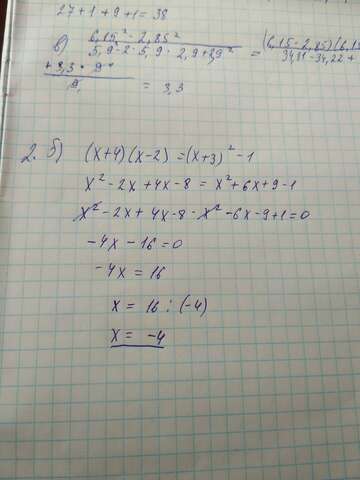 27+1+9+1=38
в) 6,15² - 2,85² / 5,9² - 2·5,9·2,9+2,9² = (6,15-2,85)(6,15
34,81-34,22+
+ 3,3 · 9
9 = 3,3
2. б) (x+4)(x-2)=(x+3)²-1
x²-2x+4x-8=x²+6x+9-1
x²-2x+4x-8-x²-6x-9+1=0
-4x-16=0
-4x=16
x=16:(-4)
x=-4